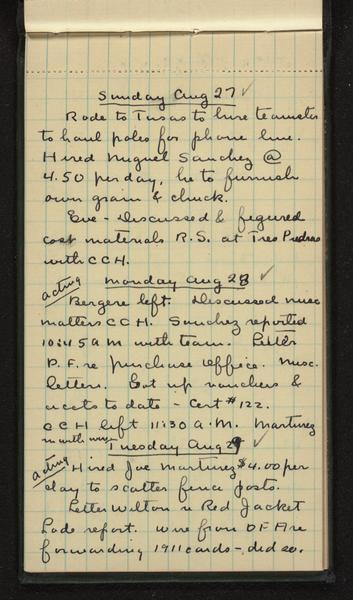 Sunday Aug 27 ✓
Rode to Tusas to hire teamster
to haul poles for phone line.
Hired Miguel Sanchez @
4.50 per day, he to furnish
own grain & chuck.
Eve - Discussed & figured
cost materials R.S. at Tres Piedras
with CCH.
acting
Monday Aug 28 ✓
Bergere left. Discussed misc
matters CCH. Sanchez reported
10:45 am with team. Letter
D.F. re purchase office. Misc.
letters. Got up vouchers &
accts to date - Cert #122.
CCH left 11:30 A.M. Martinez
Tuesday Aug 29 ✓
acting
Hired Joe Martinez $4.00 per
day to scatter fence posts.
Letter Wilton re Red Jacket
Lode report. Wire from DF re
forwarding 1911 cards - did so.